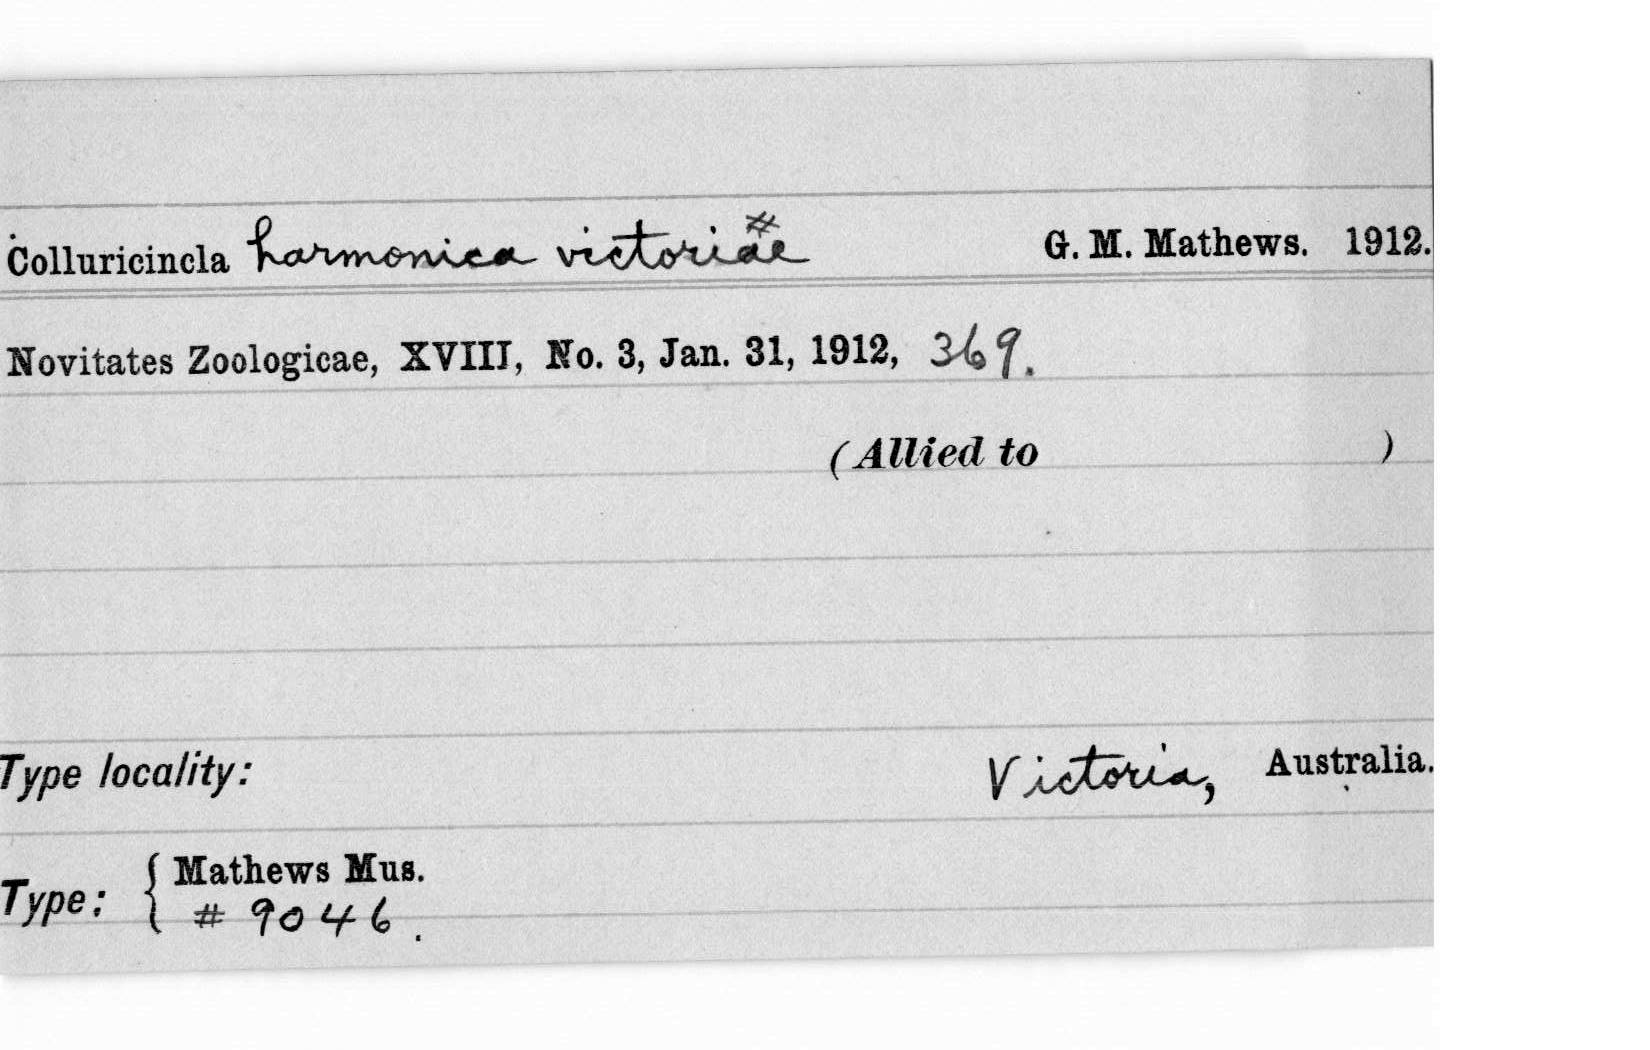 Colluricincla harmonica victoriae # G. M. Mathews. 1912.
Novitates Zoologicae, XVIII, No. 3, Jan. 31, 1912, 369.
(Allied to )
Type locality: Victoria, Australia.
Type: { Mathews Mus.
# 9046.